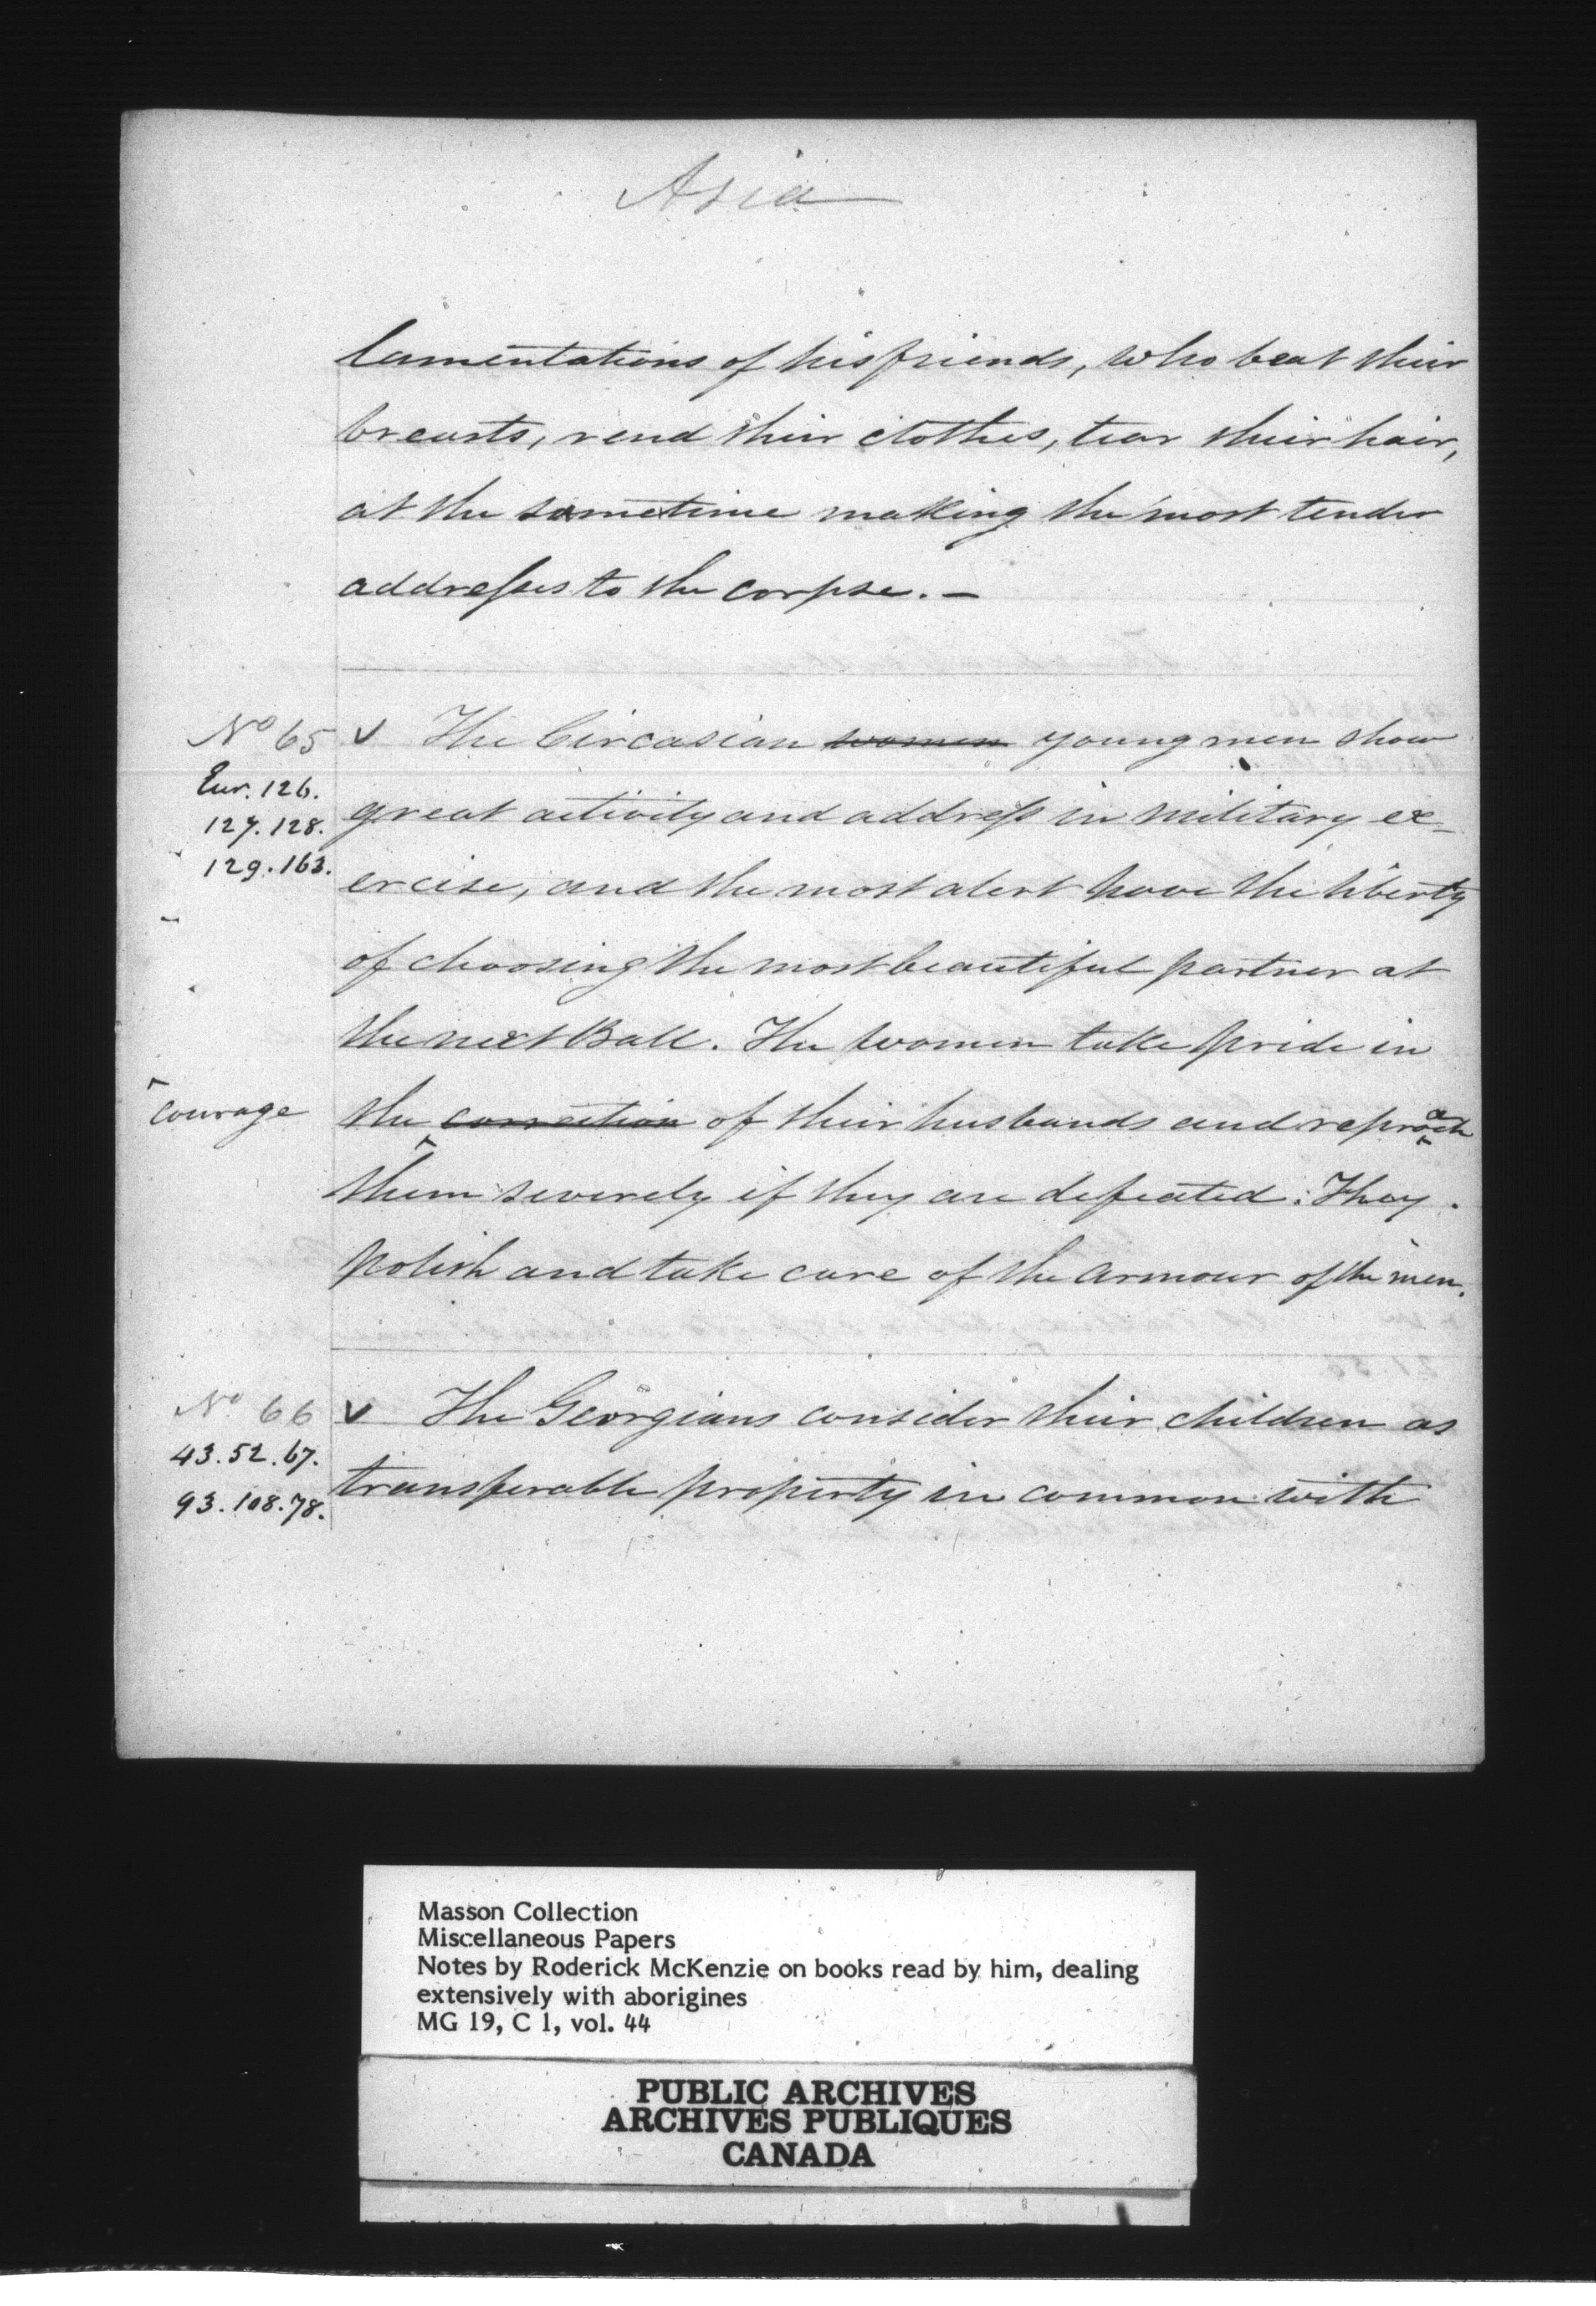 Asia
lamentations of his friends, who beat their
breasts, rend their clothes, tear their hair,
at the sametime making the most tender
addresses to the corpse. —
No 65 v The Circasian women young men show
Eur. 126.
127. 128. great activity and address in military ex-
129. 163. ercise, and the most alert have the liberty
of choosing the most beautiful partner at
the next Ball. The women take pride in
courage the correction of their husbands and reproach
them severely if they are defeated: They
polish and take care of the armour of the men.
No 66 v The Georgians consider their children as
43. 52. 67.
93. 108. 78. transferable property in common with
Masson Collection
Miscellaneous Papers
Notes by Roderick McKenzie on books read by him, dealing
extensively with aborigines
MG 19, C 1, vol. 44
PUBLIC ARCHIVES
ARCHIVES PUBLIQUES
CANADA